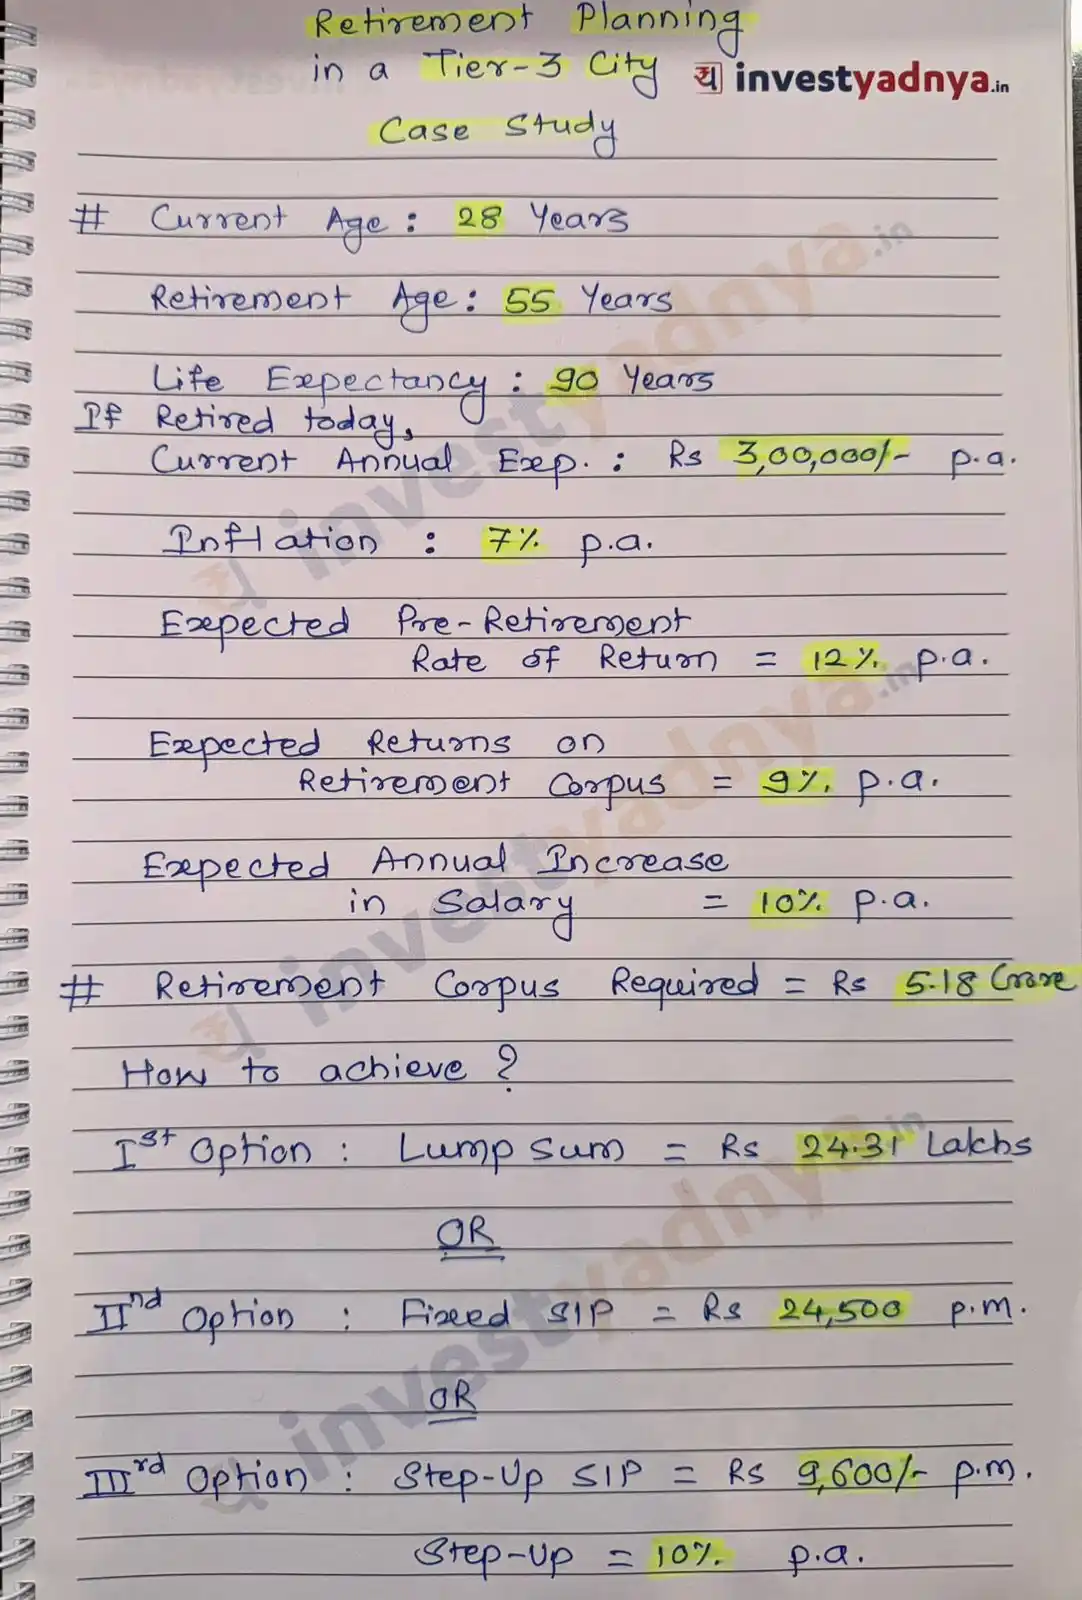 Retirement Planning
in a Tier-3 City
य investyadnya.in
Case Study
# Current Age : 28 Years
Retirement Age : 55 Years
Life Expectancy : 90 Years
If Retired today,
Current Annual Exp. : Rs 3,00,000/- p.a.
Inflation : 7% p.a.
Expected Pre-Retirement
Rate of Return = 12% p.a.
Expected Returns on
Retirement Corpus = 9% p.a.
Expected Annual Increase
in Salary = 10% p.a.
# Retirement Corpus Required = Rs 5.18 Crore
How to achieve ?
Ist Option : Lumpsum = Rs 24.31 Lakhs
OR
IInd Option : Fixed SIP = Rs 24,500 p.m.
OR
IIIrd Option : Step-Up SIP = Rs 9,600/- p.m.
Step-Up = 10% p.a.
investyadnya.in
investyadnya.in
investyadnya.in